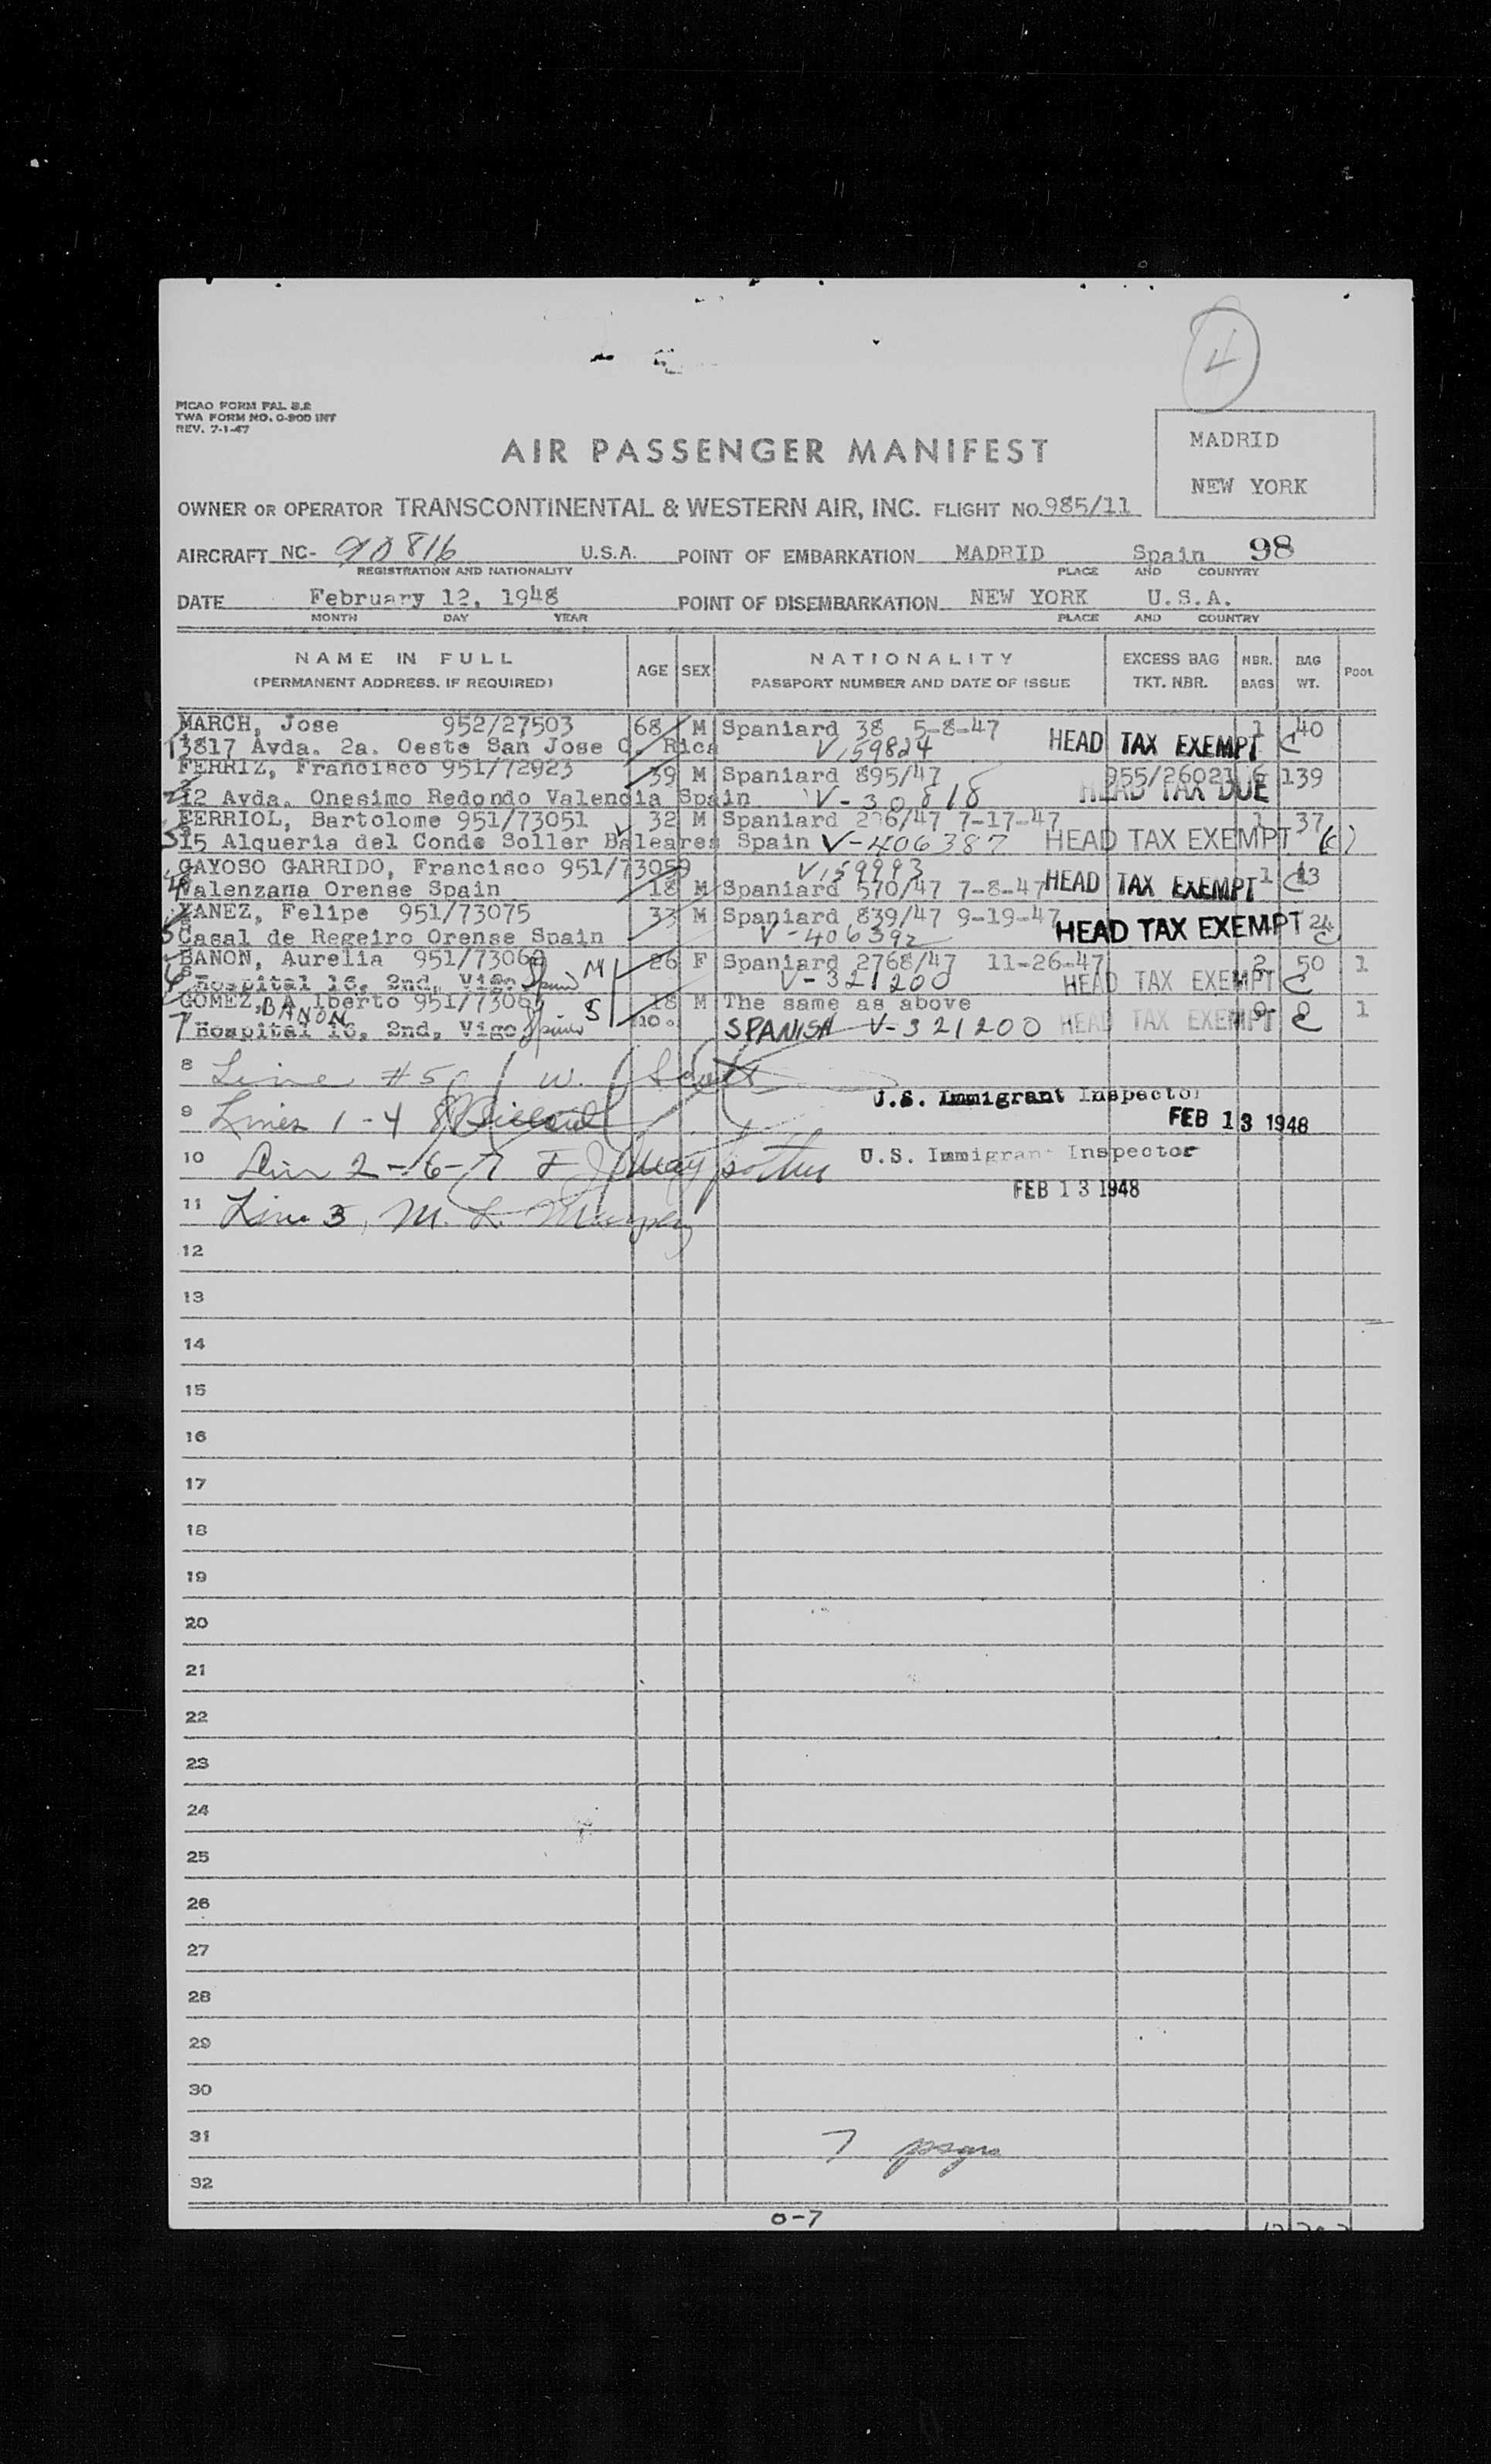 4
PICAO FORM FAL 8.2
TWA FORM NO. O-900 INT
REV. 7-1-47
AIR PASSENGER MANIFEST
MADRID
NEW YORK
OWNER OR OPERATOR TRANSCONTINENTAL & WESTERN AIR, INC. FLIGHT NO. 985/11
AIRCRAFT NC- 90816 U.S.A. POINT OF EMBARKATION MADRID Spain 98
REGISTRATION AND NATIONALITY PLACE AND COUNTRY
DATE February 12, 1948 POINT OF DISEMBARKATION NEW YORK U.S.A.
MONTH DAY YEAR PLACE AND COUNTRY
NAME IN FULL AGE SEX NATIONALITY EXCESS BAG NBR. BAG POOL
(PERMANENT ADDRESS, IF REQUIRED) PASSPORT NUMBER AND DATE OF ISSUE TKT. NBR. BAGS WT.
MARCH, Jose 952/27503 68 M Spaniard 38 5-8-47 1 40
1 3817 Avda. 2a. Oeste San Jose C. Rica V159824 HEAD TAX EXEMPT C
FERRIZ, Francisco 951/72923 39 M Spaniard 895/47 955/26021 6 139
2 12 Avda. Onesimo Redondo Valencia Spain V-30818 HEAD TAX DUE
FERRIOL, Bartolome 951/73051 32 M Spaniard 206/47 7-17-47 1 37
3 15 Alqueria del Conde Soller Baleares Spain V-406387 HEAD TAX EXEMPT (c)
GAYOSO GARRIDO, Francisco 951/73059 V159993
4 Valenzana Orense Spain 18 M Spaniard 570/47 7-8-47 HEAD TAX EXEMPT 1 C
YANEZ, Felipe 951/73075 33 M Spaniard 839/47 9-19-47 HEAD TAX EXEMPT 24
5 Casal de Regeiro Orense Spain V-406392 C
BANON, Aurelia 951/73060 M 26 F Spaniard 2768/47 11-26-47 2 50 1
6 Hospital 16, 2nd, Vigo Spain V-321200 HEAD TAX EXEMPT C
GOMEZ, BANON Alberto 951/73061 S 18 M The same as above 1
7 Hospital 16, 2nd, Vigo Spain mo. SPANISH V-321200 HEAD TAX EXEMPT C
8 Line #5 W. Scott
U.S. Immigrant Inspector
9 Lines 1-4
FEB 13 1948
10 Line 2-6-7
U.S. Immigrant Inspector
FEB 13 1948
11 Line 3, M. L.
12
13
14
15
16
17
18
19
20
21
22
23
24
25
26
27
28
29
30
31 7 psgrs
32
0-7